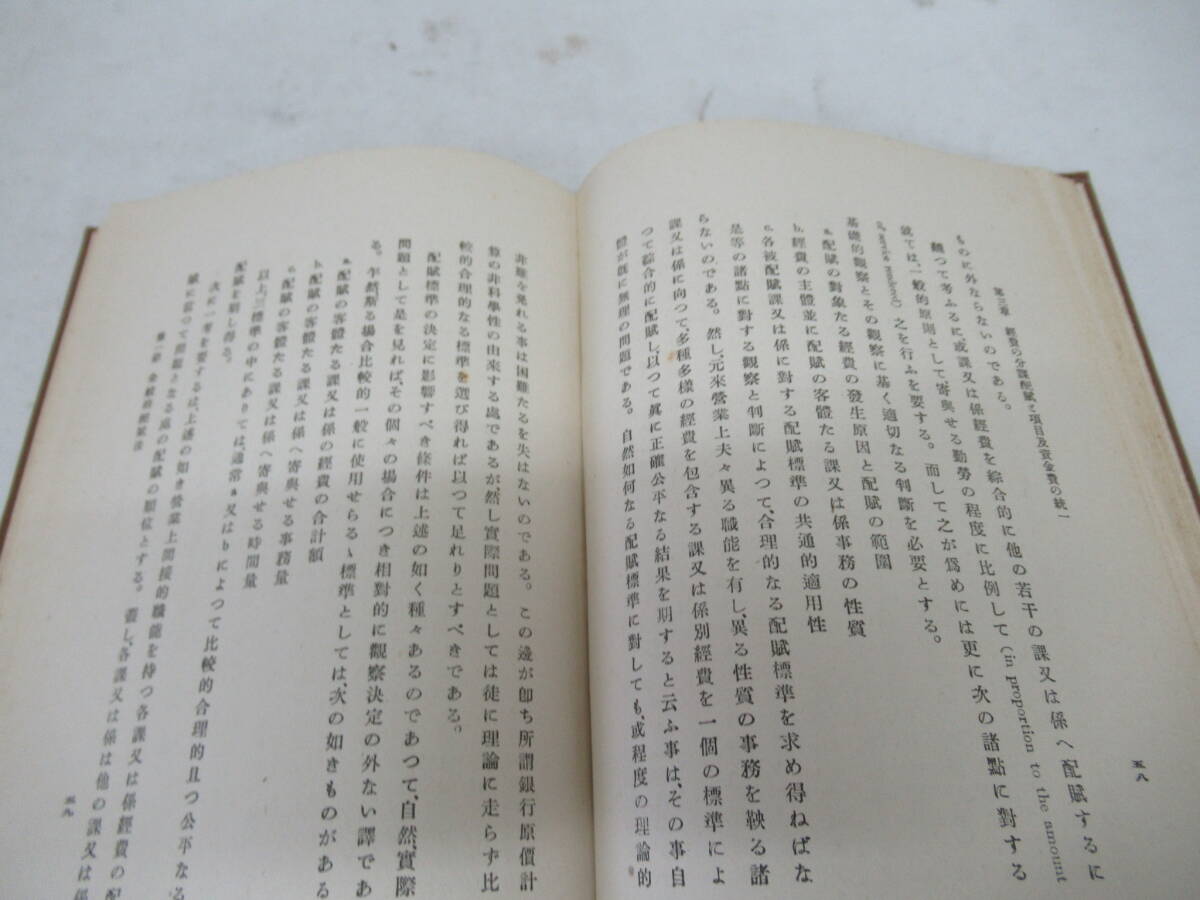 第三章 經費の分課配賦と項目及資金費の統一
五八
ものに外ならないのである。
飜つて考ふるに、或課又は係經費を綜合的に他の若干の課又は係へ配賦するに
就ては、一般的原則として寄與せる勤勞の程度に比例して(in proportion to the amount
of service rendered)之を行ふを要する。而して之が爲めには更に次の諸點に對する
基礎的觀察とその觀察に基く適切なる判斷を必要とする。
a. 配賦の對象たる經費の發生原因と配賦の範圍
b. 經費の主體並に配賦の客體たる課又は係事務の性質
c. 各被配賦課又は係に對する配賦標準の共通的適用性
是等の諸點に對する觀察と判斷によつて、合理的なる配賦標準を求め得ねばな
らないのである。然し、元來營業上夫々異る職能を有し、異る性質の事務を鞅る諸
課又は係に向つて、多種多樣の經費を包含する課又は係別經費を一個の標準によ
つて綜合的に配賦し、以つて眞に正確公平なる結果を期すると云ふ事は、その事自
體が既に無理の問題である。自然如何なる配賦標準に對しても、或程度の理論的
非難を免れる事は困難たるを失はないのである。この邊が卽ち所謂銀行原價計
算の非科學性の由來する處であるが、然し實際問題としては徒に理論に走らず比
較的合理的なる標準を選び得れば以つて足れりとすべきである。
配賦標準の決定に影響すべき條件は上述の如く種々あるのであつて、自然、實際
問題として是を見れば、その個々の場合につき相對的に觀察決定の外ない譯であ
る。乍然斯る場合比較的一般に使用せらるゝ標準としては、次の如きものがある
a. 配賦の客體たる課又は係の經費の合計額
b. 配賦の客體たる課又は係へ寄與せる事務量
c. 配賦の客體たる課又は係へ寄與せる時間量
以上三標準の中にありては通常a又はbによつて比較的合理的且つ公平なる
配賦を期し得る。
次に一考を要するは、上述の如き營業上間接的職能を持つ各課又は係經費の配
賦に當つて問題となる處の配賦の順位とする。蓋し、各課又は係は他の課又は係
五九